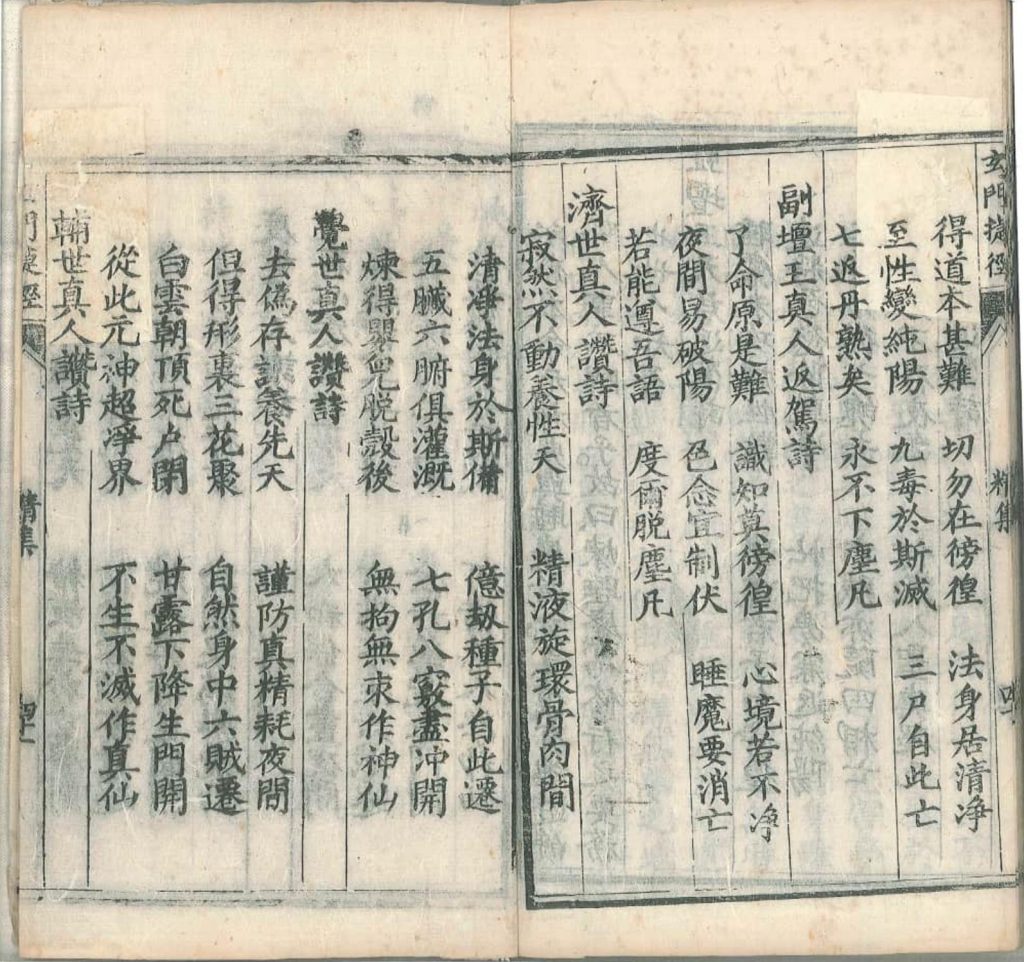 玄門捷徑 精集
得道本甚難 切勿在徬徨 法身居清净
至性變純陽 九毒於斯滅 三尸自此亡
七返丹熟矣 永不下塵凡
副壇王真人返駕詩
了命原是難 識知莫徬徨 心境若不净
夜間易破陽 色念宜制伏 睡魔要消亡
若能遵吾語 度爾脫塵凡
濟世真人讚詩
寂然不動養性天 精液旋環骨肉間
清凈法身於斯備 億刼種子自此遷
五臟六腑俱灌溉 七孔八竅盡冲開
煉得嬰兒脫殼後 無拘無束作神仙
覺世真人讚詩
去僞存誠養先天 謹防真精耗夜間
但得形裏三花聚 自然身中六賊遷
白雲朝頂死户閉 甘露下降生門開
從此元神超凈界 不生不滅作真仙
輔世真人讚詩
門捷徑 精集